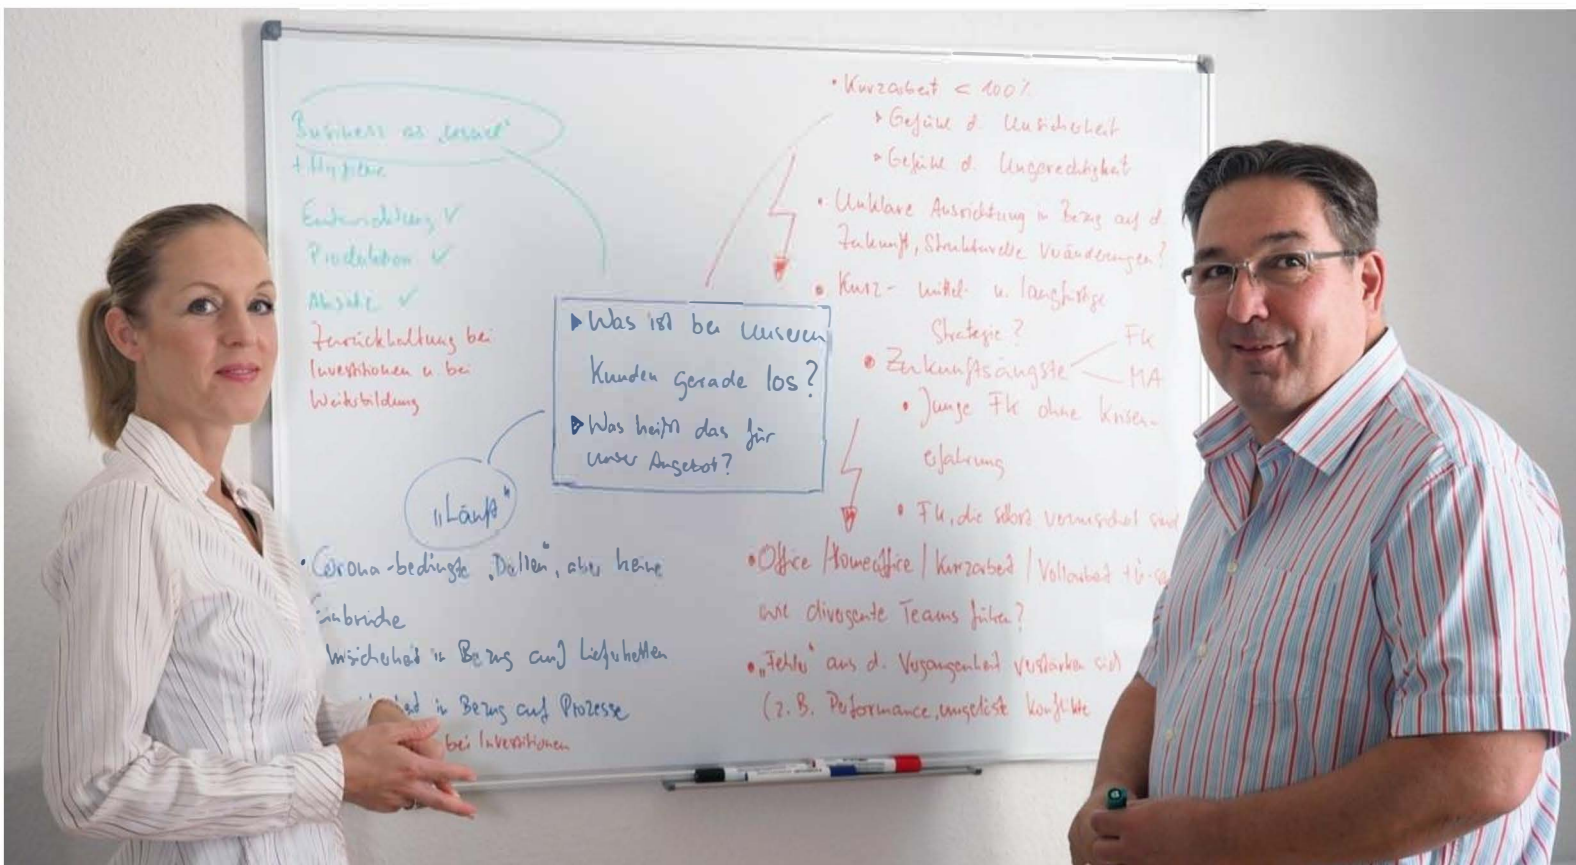 Business as usual"
+ Hygiene
Entwicklung ✓
Produktion ✓
Absatz ✓
Zurückhaltung bei
Investitionen u. bei
Weiterbildung
▶ Was ist bei unseren
Kunden gerade los?
▶ Was heißt das für
unser Angebot?
„Läuft"
• Corona-bedingte „Dellen", aber keine
Einbrüche
Unsicherheit in Bezug auf Lieferketten
in Bezug auf Prozesse
bei Investitionen
• Kurzarbeit < 100%
▸ Gefühl d. Unsicherheit
▸ Gefühl d. Ungerechtigkeit
• Unklare Ausrichtung in Bezug auf d.
Zukunft, Strukturelle Veränderungen?
• Kurz- mittel- u. langfristige
Strategie?
• Zukunftsängste
FK
MA
• Junge FK ohne Krisen-
erfahrung
• FK, die selbst verunsichert sind
• Office / Homeoffice / Kurzarbeit / Vollarbeit +
wie divergente Teams führen?
• „Fehler" aus d. Vergangenheit verstärken sich
(z.B. Performance, ungelöste Konflikte